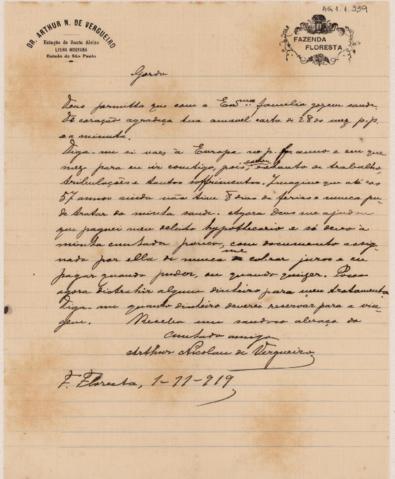 AG.1.1.559
DR. ARTHUR N. DE VERGUEIRO
Estação de Santo Aleixo
LINHA MOGYANA
Estado de São Paulo
FAZENDA
FLORESTA
Gordo
Deus permitta que com a Exma familia gozem saude.
De coração agradeço tua amavel carta de 28 do mez p.p.
e a minuta.
Diga-me si vaes á Europa no p. f. anno e em que
mez para eu ir comtigo pois, estou de trabalho
tribulações e tantos soffrimentos. Imagino que até os
57 annos ainda não tive 8 dias de ferias e nunca pu-
de tratar da minha saude. Agora Deus me ajudou
que paguei meu debito hypothecario e só devo a
minha cunhada porém, com documento assig-
nado por ella de nunca cobrar juros e eu
pagar quando puder, ou quando quizer. Posso
agora distrahir algum dinheiro para meu tratamento.
Diga-me quanto dinheiro deverei reservar para a via-
gem.
Receba um saudoso abraço do
cunhado amigo
Arthur Nicolau de Vergueiro
F. Floresta, 1-11-919